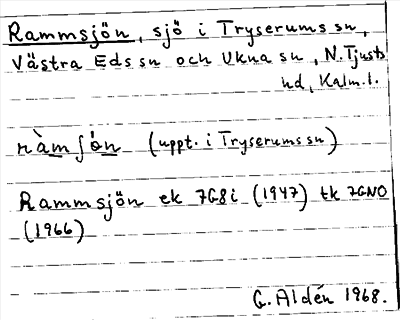 Rammsjön, sjö i Tryserums sn,
Västra Eds sn och Ukna sn, N. Tjusts
hd, Kalm. l.
ràmʃön (uppt. i Tryserums sn)
Rammsjön ek 7G8i (1947) tk 7GNO
(1966)
G. Aldén 1968.